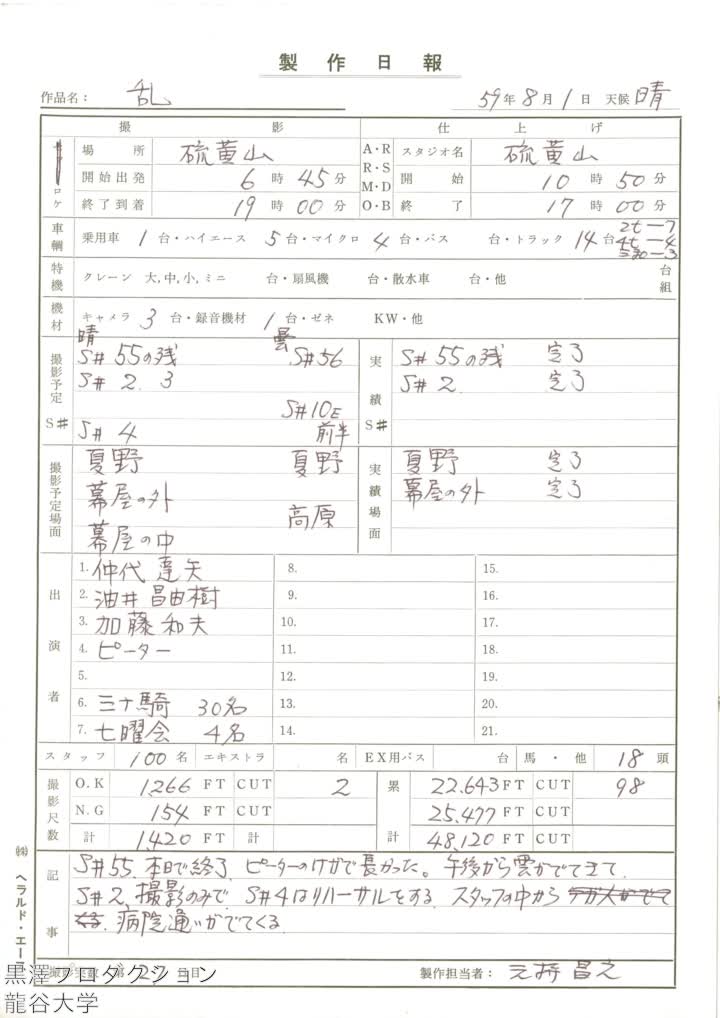 製作日報
作品名： 乱 59年8月1日 天候 晴
撮影 仕上げ
ロケ 場所 硫黄山 A・R R・S M・D O・B スタジオ名 硫黄山
開始出発 6時45分 開始 10時50分
終了到着 19時00分 終了 17時00分
車輌 乗用車 1台・ハイエース 5台・マイクロ 4台・バス 台・トラック 14台 2t—7 4t—4
特機 クレーン 大,中,小,ミニ 台・扇風機 台・散水車 台・他 台組
機材 キャメラ 3台・録音機材 1台・ゼネ KW・他
撮影予定 S# 晴 曇 実績 S#
S#55の残 S#56 S#55の残 完了
S#2. 3 S#2. 完了
S#10E
S#4 前半
撮影予定場面 実績場面
夏野 夏野 夏野 完了
幕屋の外 幕屋の外 完了
高原
幕屋の中
出演者
1. 仲代達矢 8. 15.
2. 油井昌由樹 9. 16.
3. 加藤和夫 10. 17.
4. ピーター 11. 18.
5. 12. 19.
6. 三十騎 30名 13. 20.
7. 七曜会 4名 14. 21.
スタッフ 100名 エキストラ 名 EX用バス 台 馬・他 18頭
撮影尺数 O.K 1,266 FT CUT 2 累計 22,643 FT CUT 98
N.G 154 FT CUT 25,477 FT CUT
計 1,420 FT 計 48,120 FT CUT
記事
S#55. 本日で終了. ピーターのけがで長かった。午後から雲がでてきて.
S#2, 撮影のみで. S#4はリハーサルをする. スタッフの中から
病院通いがでてくる.
撮影実数 第27日目 製作担当者：元持昌之
㈱ ヘラルド・エース
黒澤プロダクション
龍谷大学